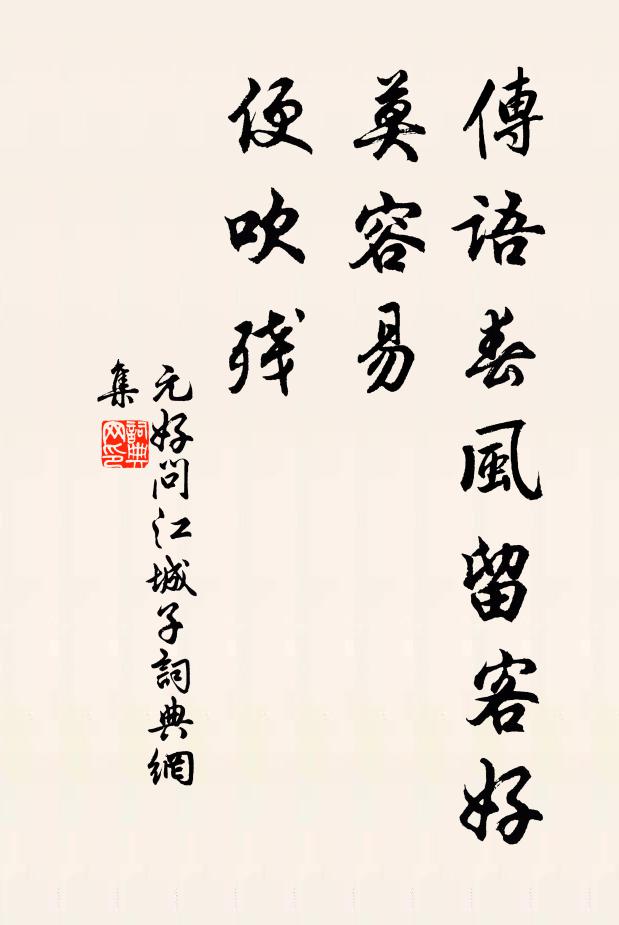 傳語春風留客好
莫容易
便吹残
元好问江城子詞典網
集
詞典
网印